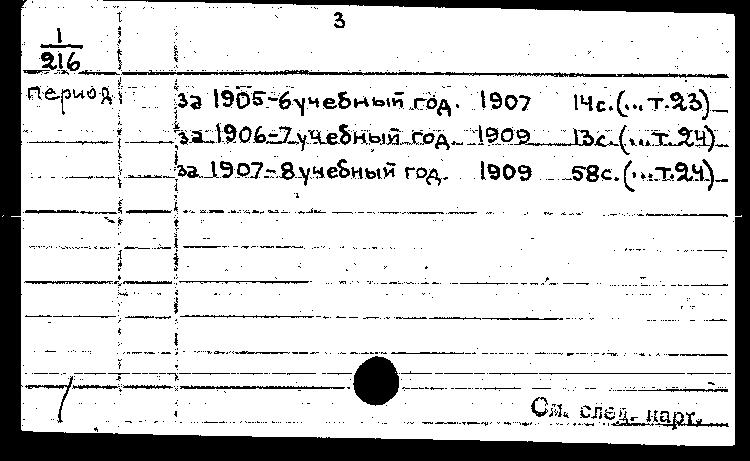 3
1
216
период
за 1905-6 учебный год. 1907 14с. (...т.23)
за 1906-7 учебный год. 1909 13с. (...т.24)
за 1907-8 учебный год. 1909 58с. (...т.24)
См. след. карт.